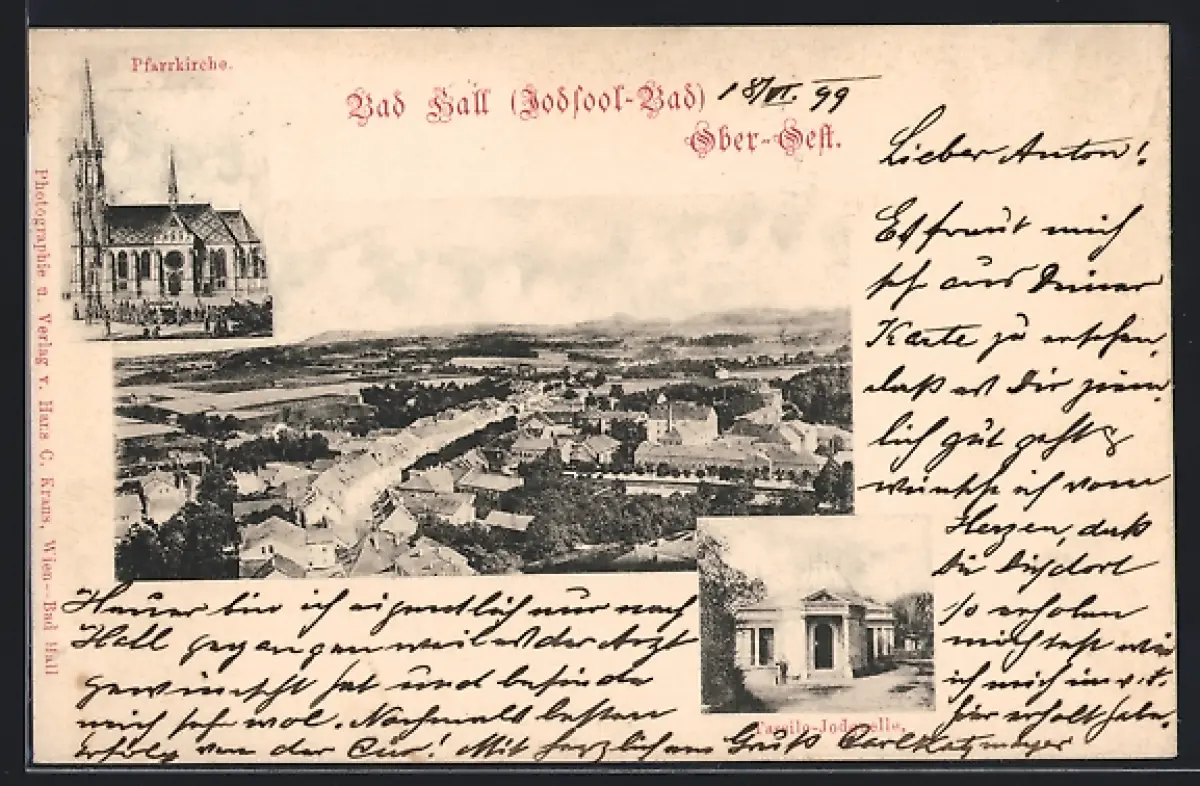 Pfarrkirche.
Bad Hall (Jodsool-Bad)
Ober-Oest.
18/VI. 99
Photographie u. Verlag v. Hans C. Kraus, Wien–Bad Hall
Lieber Anton!
Es freut mich
sehr aus Deiner
Karte zu ersehen,
daß es Dir ziem
lich gut geht &
wünsche ich vom
Herzen, daß
Du Dich dort
so erholen
möchtest wie
ich mich im v. J.
hier erholt habe.
Heuer bin ich eigentlich nur nach
Hall gegangen weil es der Arzt
gewünscht hat und befinde
mich sehr wol. Nochmals besten
Erfolg von der Cur! Mit herzlichem Gruß Carl
Tassilo-Jodquelle.